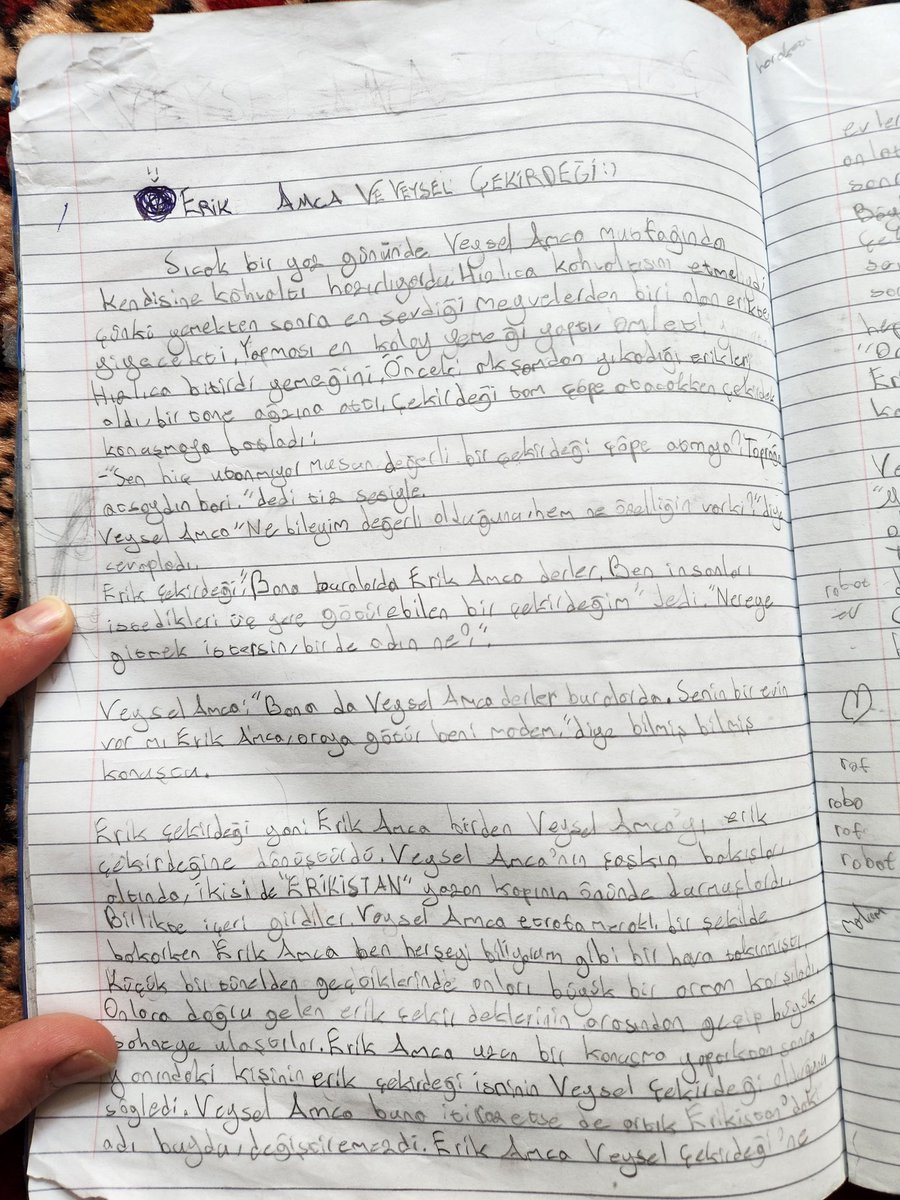 ERİK AMCA VE VEYSEL ÇEKİRDEĞİ:)
Sıcak bir yaz gününde Veysel Amca mutfağında
kendisine kahvaltı hazırlıyordu. Hızlıca kahvaltısını etmeliydi
çünkü yemekten sonra en sevdiği meyvelerden biri olan erikten
yiyecekti. Yapması en kolay yemeği yaptı: omlet!
Hızlıca bitirdi yemeğini. Önceki akşamdan yıkadığı erikleri
aldı, bir tane ağzına attı. Çekirdeği tam çöpe atacakken çekirdek
konuşmaya başladı:
-"Sen hiç utanmıyor musun değerli bir çekirdeği çöpe atmaya? Toprağa
atsaydın bari." dedi tiz sesiyle.
Veysel Amca "Ne bileyim değerli olduğunu, hem ne özelliğin varki?" diye
cevapladı.
Erik çekirdeği, "Bana buralarda Erik Amca derler. Ben insanları
istedikleri üç yere götürebilen bir çekirdeğim" dedi. "Nereye
gitmek istersin, bir de adın ne?".
Veysel Amca: "Bana da Veysel Amca derler buralarda. Senin bir evin
var mı Erik Amca, oraya götür beni madem." diye bilmiş bilmiş
konuştu.
Erik çekirdeği yani Erik Amca birden Veysel Amca'yı erik
çekirdeğine dönüştürdü. Veysel Amca'nın şaşkın bakışları
altında, ikisi de "ERİKİSTAN" yazan kapının önünde durmuşlardı.
Birlikte içeri girdiler. Veysel Amca etrafa meraklı bir şekilde
bakarken Erik Amca ben herşeyi biliyorum gibi bir hava takınmıştı.
Küçük bir tünelden geçtiklerinde onları büyük bir orman karşıladı.
Onlara doğru gelen erik çekirdeklerinin arasından geçip büyük
sahneye ulaştılar. Erik Amca uzun bir konuşma yaptıktan sonra
yanındaki kişinin erik çekirdeği isminin Veysel Çekirdeği olduğunu
söyledi. Veysel Amca buna itiraz etse de artık Erikistan'daki
adı buydu, değiştiremezdi. Erik Amca Veysel Çekirdeği'ne
robot
ev
1
raf
robo
raf
robot